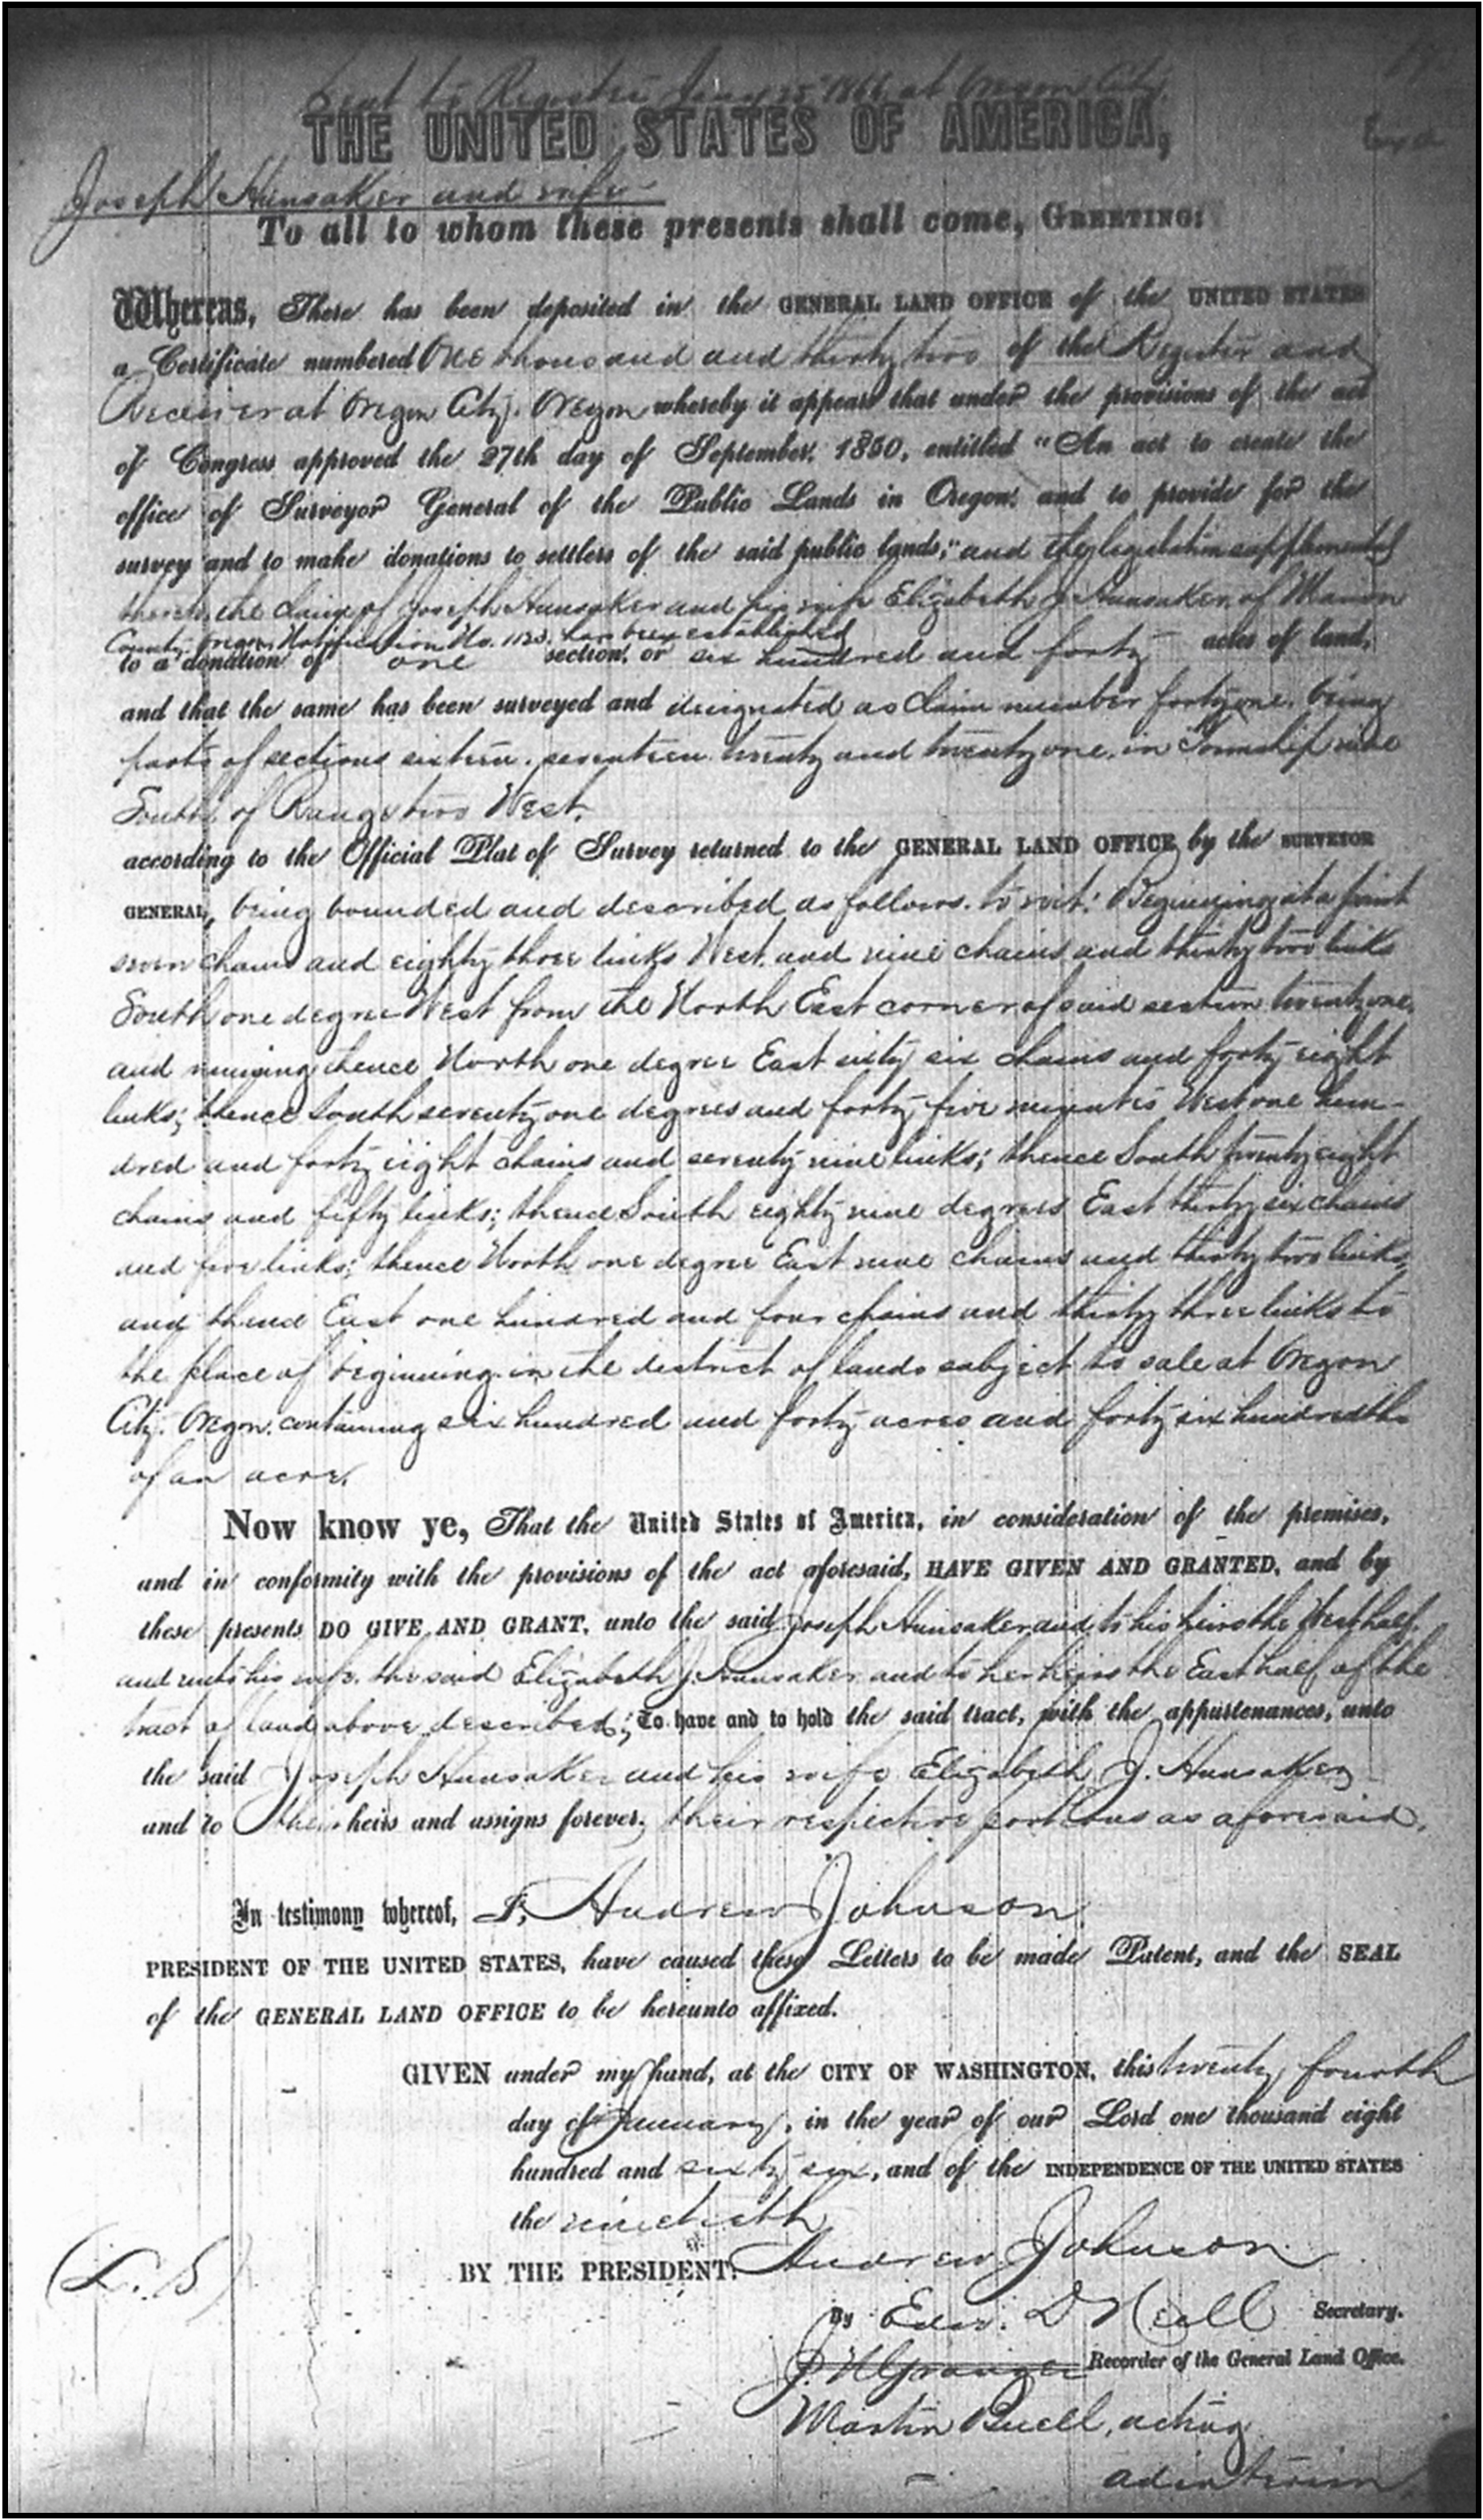 Sent to Register Jany 25 1866 at Oregon City
THE UNITED STATES OF AMERICA,
Joseph Hunsaker and wife
To all to whom these presents shall come, GREETING:
Whereas, There has been deposited in the GENERAL LAND OFFICE of the UNITED STATES
a Certificate numbered One thousand and thirty two of the Register and
Receiver at Oregon City, Oregon whereby it appears that under the provisions of the act
of Congress approved the 27th day of September, 1850, entitled "An act to create the
office of Surveyor General of the Public Lands in Oregon, and to provide for the
survey and to make donations to settlers of the said public lands," and the legislation supplemental
thereto, the claim of Joseph Hunsaker and his wife Elizabeth J. Hunsaker, of Marion
County Oregon Notification No. 1123. has been established
to a donation of one section, or six hundred and forty acres of land,
and that the same has been surveyed and designated as Claim number forty one. being
parts of sections sixteen, seventeen twenty and twenty one, in Township nine
South of Range two West.
according to the Official Plat of Survey returned to the GENERAL LAND OFFICE by the SURVEYOR
GENERAL, being bounded and described as follows. to wit: Beginning at a point
seven chains and eighty three links West, and nine chains and thirty two links
South one degree West from the North East corner of said section twenty one,
and running thence North one degree East sixty six chains and forty eight
links; thence South seventy one degrees and forty five minutes West one hun-
dred and forty eight chains and seventy nine links; thence South twenty eight
chains and fifty links; thence South eighty nine degrees East thirty six chains
and five links; thence North one degree East nine chains and thirty two links,
and thence East one hundred and four chains and thirty three links to
the place of beginning in the district of lands subject to sale at Oregon
City, Oregon, containing six hundred and forty acres and forty six hundredths
of an acre.
Now know ye, That the United States of America, in consideration of the premises,
and in conformity with the provisions of the act aforesaid, HAVE GIVEN AND GRANTED, and by
these presents DO GIVE AND GRANT, unto the said Joseph Hunsaker and to his heirs the West half,
and unto his wife, the said Elizabeth J. Hunsaker and to her heirs the East half of the
tract of land above described; To have and to hold the said tract, with the appurtenances, unto
the said Joseph Hunsaker and his wife Elizabeth J. Hunsaker
and to their heirs and assigns forever, their respective portions as aforesaid.
In testimony whereof, I, Andrew Johnson
PRESIDENT OF THE UNITED STATES, have caused these Letters to be made Patent, and the SEAL
of the GENERAL LAND OFFICE to be hereunto affixed.
GIVEN under my hand, at the CITY OF WASHINGTON, this twenty fourth
day of January, in the year of our Lord one thousand eight
hundred and sixty six, and of the INDEPENDENCE OF THE UNITED STATES
the ninetieth
(L. S)
BY THE PRESIDENT: Andrew Johnson
By Edw. D Neill Secretary.
J. N Granger Recorder of the General Land Office.
Martin Buell, acting
ad interim